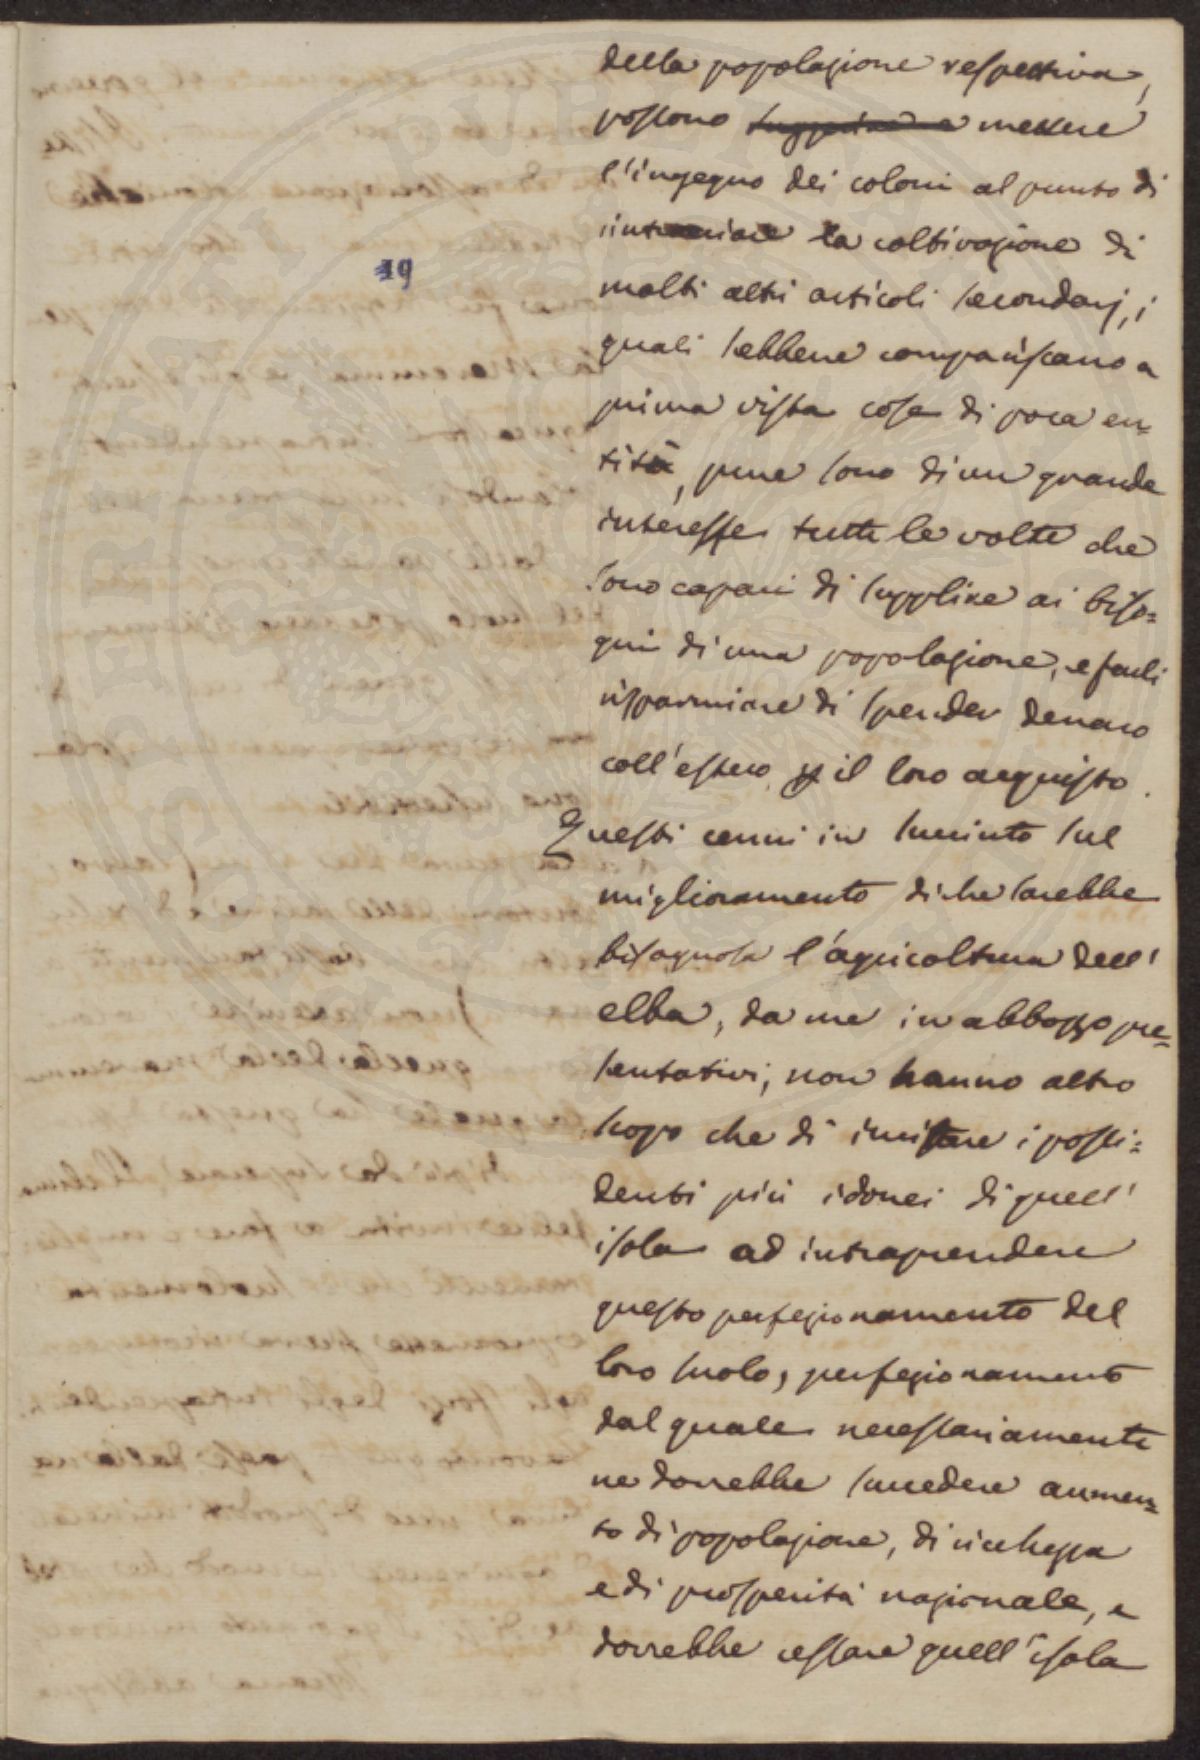 della popolazione respettiva,
possono suggerire e mettere
l'ingegno dei coloni al punto di
la coltivazione di
molti altri articoli secondarj, i
quali sebbene compariscano a
prima vista cose di poca en=
tità, pure sono di un grande
interesse tutte le volte che
sono capaci di supplire ai biso=
gni di una popolazione, e farli
risparmiare di spender denaro
coll'estero p il loro acquisto.
Questi cenni in succinto sul
miglioramento di che sarebbe
bisognosa l'agricoltura dell'
elba, da me in abbozzo pre=
sentativi, non hanno altro
scopo che di incitare i possi=
denti più idonei di quell'
isola ad intraprendere
questo perfezionamento del
loro suolo, perfezionamento
dal quale necessariamente
ne dovrebbe succedere aumen=
to di popolazione, di ricchezza
e di prosperità nazionale, e
dovrebbe cessare quell'isola
19